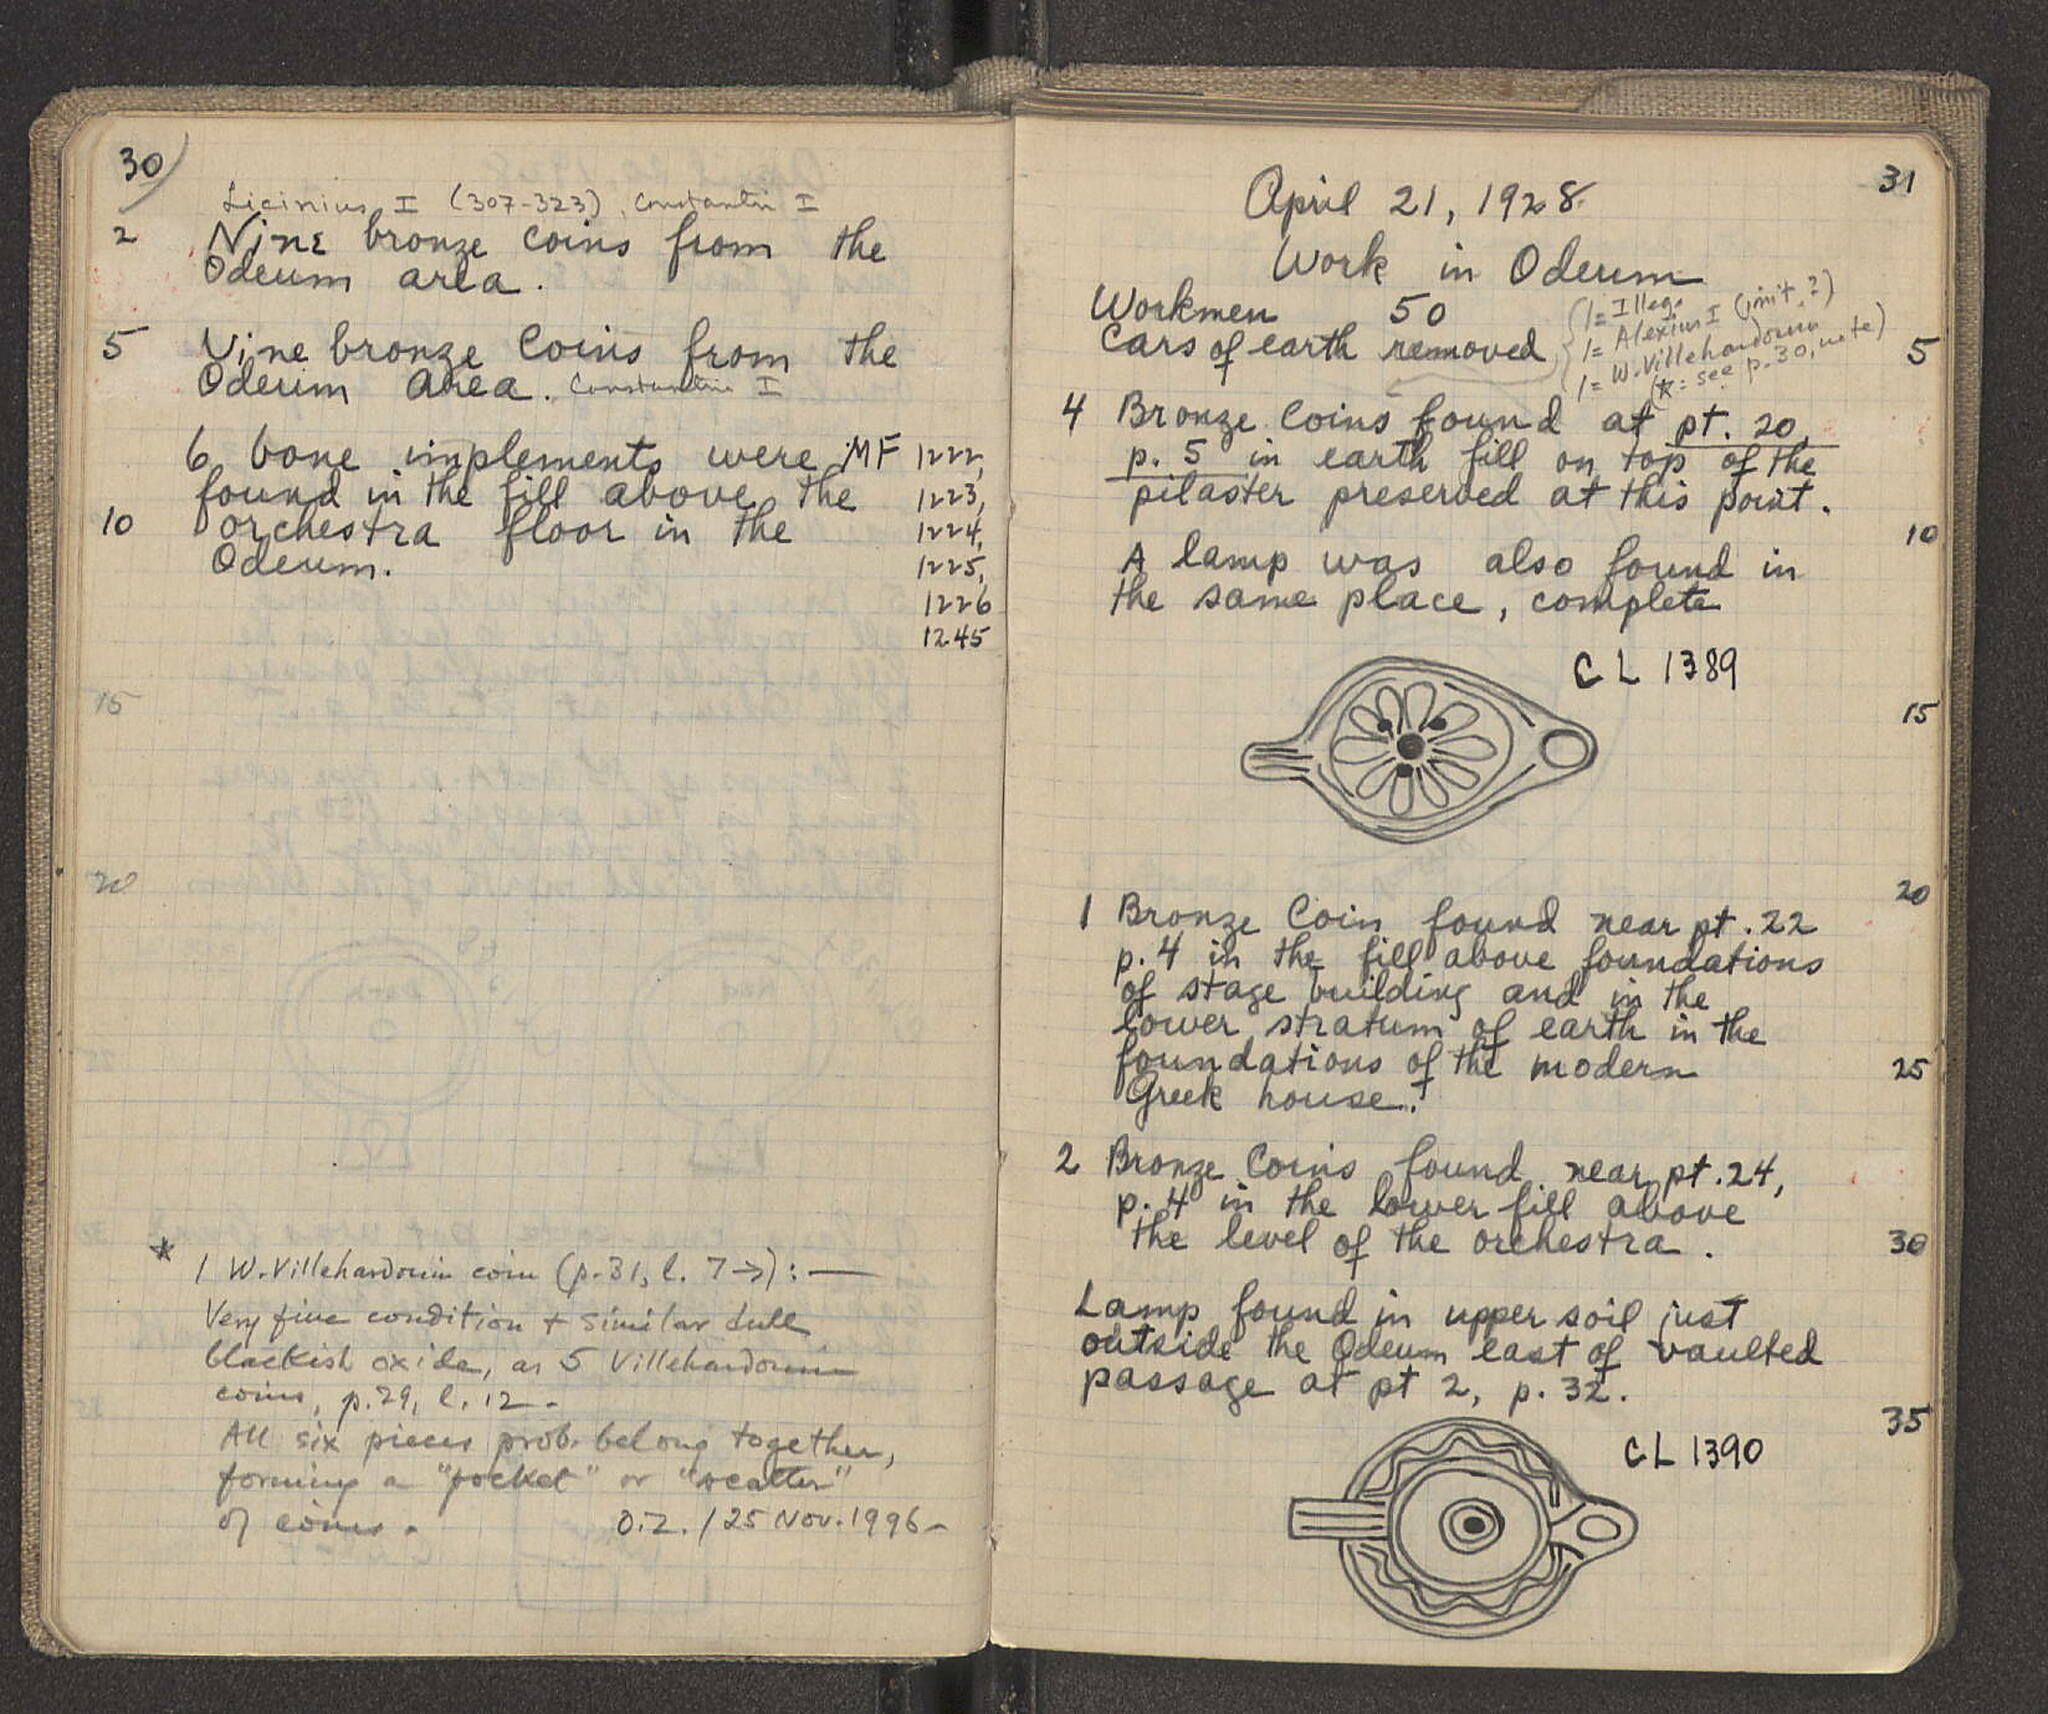 30
Licinius I (307-323), Constantin I
2 Nine bronze coins from the
Odeum area.
5 Nine bronze coins from the
Odeum area. Constantin I
6 bone implements were MF 1222,
found in the fill above the 1223,
10 orchestra floor in the 1224,
Odeum. 1225,
1226
1245
15
20
25
30
* 1 W. Villehardouin coin (p. 31, l. 7→): —
Very fine condition + similar dull
blackish oxide, as 5 Villehardouin
coins, p. 29, l. 12 -
All six pieces prob. belong together,
forming a "pocket" or "scatter"
of coins. O.Z. / 25 Nov. 1996 -
31
April 21, 1928.
Work in Odeum
Workmen 50
Cars of earth removed 5
1 = Illeg.
1 = Alexius I (imit.?)
1 = W. Villehardouin
(*: see p. 30, note)
4 Bronze coins found at pt. 20,
p. 5 in earth fill on top of the
pilaster preserved at this point.
10
A lamp was also found in
the same place, complete
C L 1389
15
20
1 Bronze Coin found near pt. 22
p. 4 in the fill above foundations
of stage building and in the
lower stratum of earth in the
foundations of the modern 25
Greek house.
2 Bronze Coins found near pt. 24,
p. 4 in the lower fill above
the level of the orchestra. 30
Lamp found in upper soil just
outside the Odeum east of vaulted
passage at pt 2, p. 32.
35
C L 1390